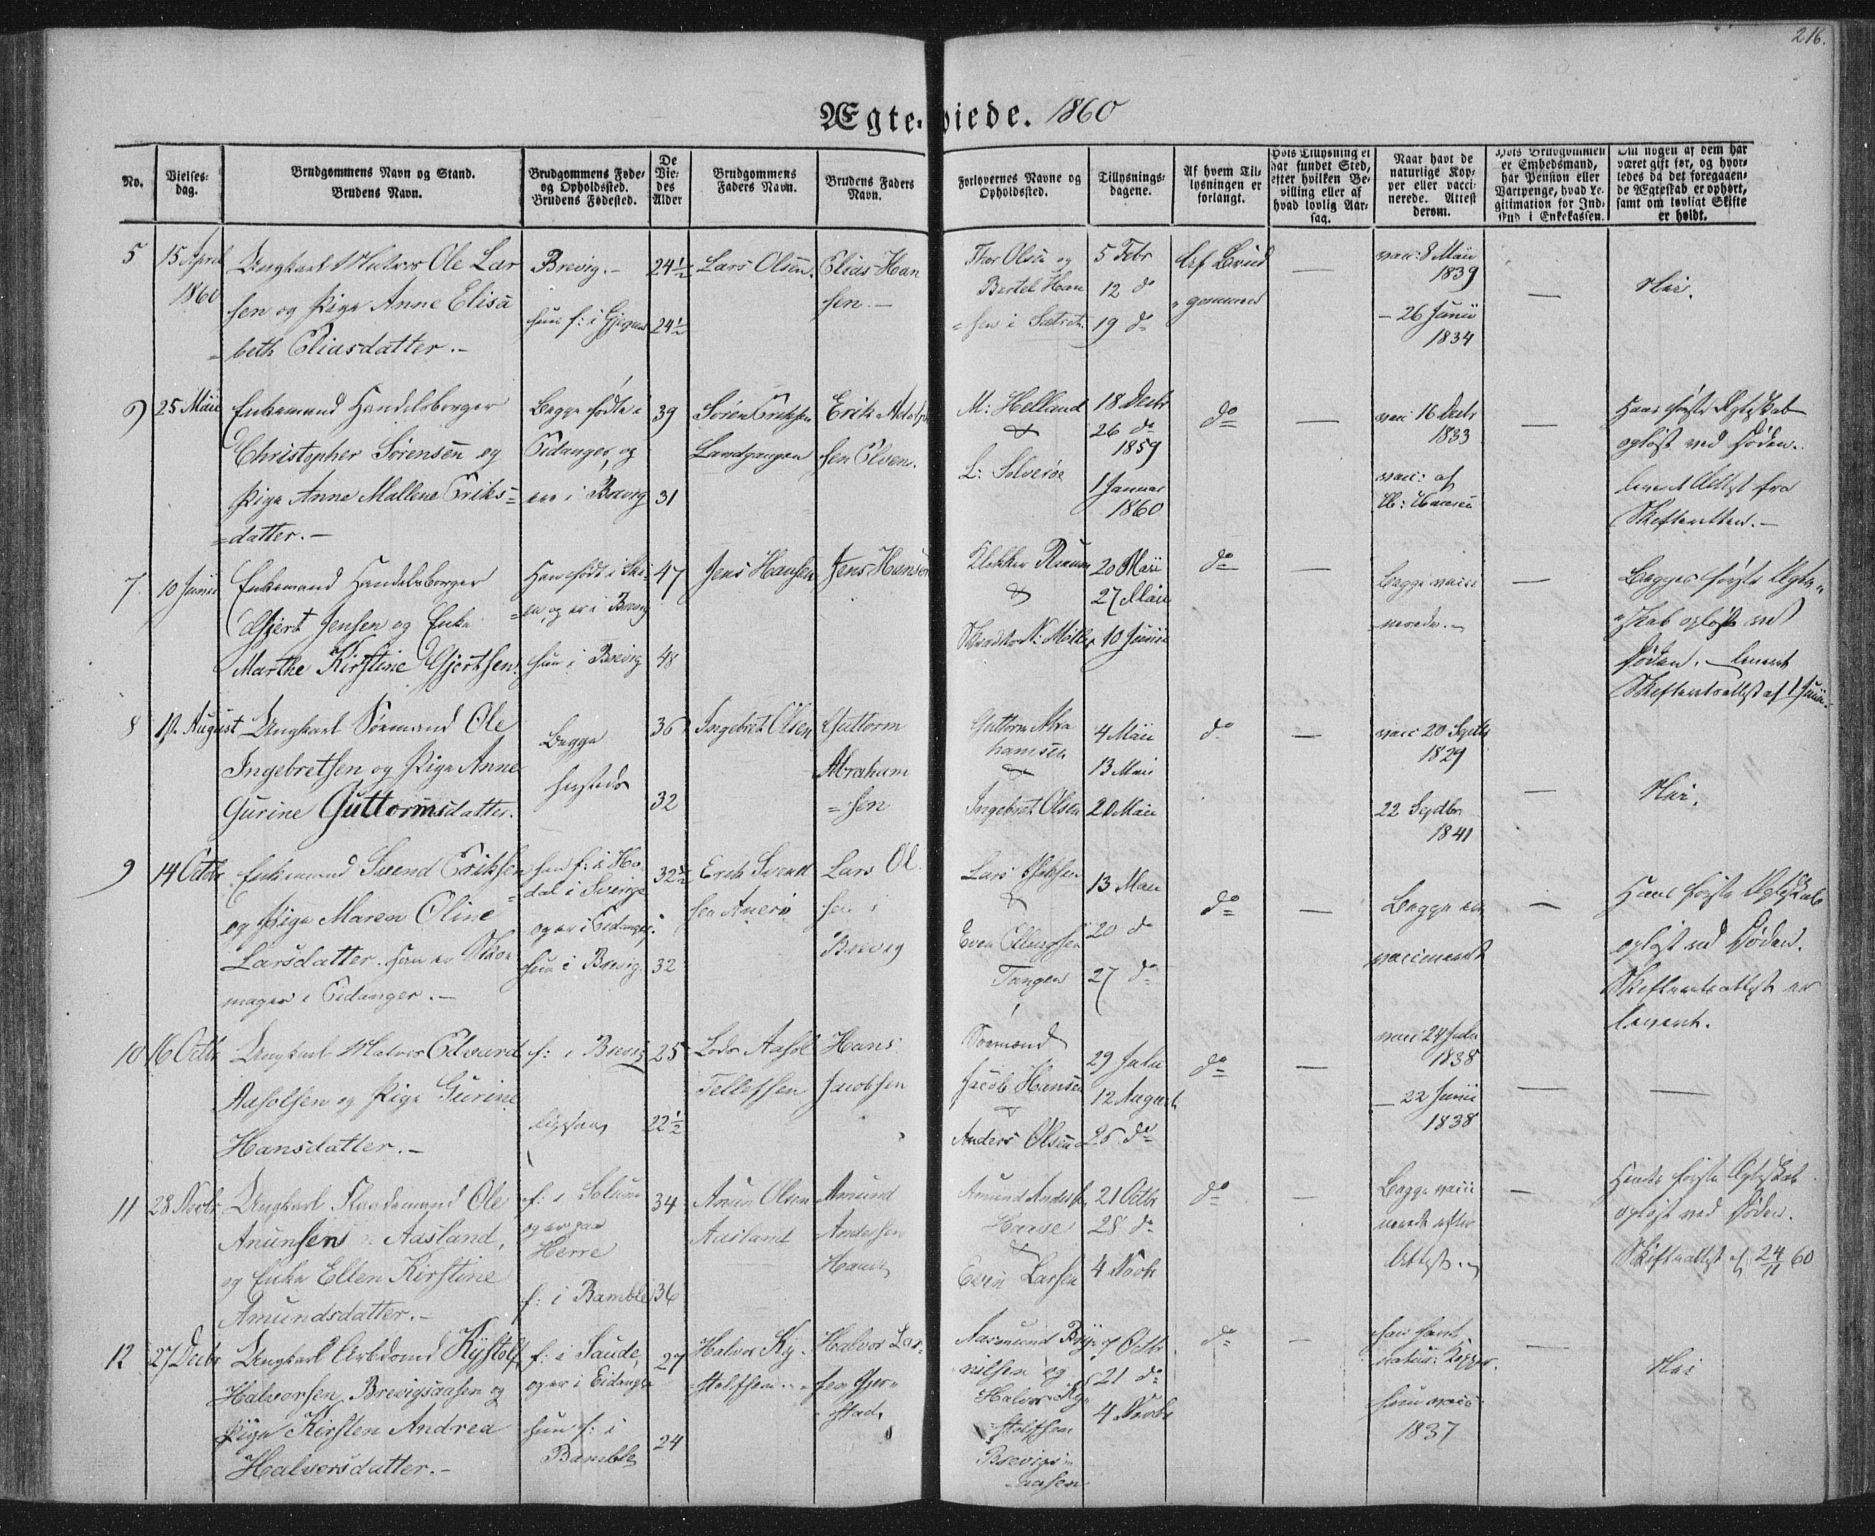 216.
Ægteviede. 1860
No.
Vielsesdag.
Brudgommens Navn og Stand.
Brudens Navn.
Brudgommens Føde-
og Opholdssted.
Brudens Fødested.
De
Vie-
des
Alder
Brudgommens
Faders Navn.
Brudens Faders
Navn.
Forlovernes Navne og
Opholdssted.
Tillysnings-
dagene.
Af hvem Til-
lysningen er
forlangt.
Hvis Tillysning ei
har fundet Sted,
efter hvilken Be-
villing eller af
hvad lovlig Aar-
sag.
Naar havt de
naturlige Kop-
per eller vacci-
nerede. Attest
derom.
Hvis Brudgommen
er Embedsmand,
har Pension eller
Vartpenge, hvad Le-
gitimation for Ind-
skud i Enkekassen.
Om nogen af dem har
været gift før, og hvor-
ledes da det foregaaen-
de Ægteskab er ophørt,
samt om lovligt Skifte
er holdt.
5
15 April
1860
Ungkarl Matros Ole Lar
sen og Pige Anne Elisa
=beth Eliasdatter.-
Brevig.-
hun f: i
24½
24½
Lars Olsen.
Elias Han
sen.-
Thor Olsen og
Bertel Han
=sen i
5 Febr
12 do
19 do
vacc: 8 Mai
1839
- 26 Junii
1834
Nei.
6
25 Mai
Enkemand Handelsborger
Christopher Sørensen og
Pige Anne Mallene Eriks=
=datter.-
Begge fødte i
Eidanger, og
ere i Brevig
39
31
Søren Eriksen
Landgangen
Erik Adolp
sen Elven.
M: Helland
&
L:
18 Decbr
26 do
1859
1 Januar
1860
do
vacc 16 Decbr
1833
vacc: af
Hans første Ægteskab
opløst ved Døden.
levert Attest fra
Skifteretten.-
7
10 Junii
Enkemand Handelsborger
Gjert Jensen og Enke
Marthe Kirstine Gjertsen.
Han født i Ski-
en, og er i Brevig
hun i Brevig
47
48
Jens Hansen
Jens Hansen
Klokker
&
N: Møller
20 Mai
27 Mai
10 Junii
do
Begge vacci
nerede.-
Begges første Ægte-
skab opløst ved
Døden. - levert
Skifteretsattest af 1 Junii.
8
19. August
Ungkarl Sømand Ole
Ingebretsen og Pige Anne
Gurine Guttormsdatter.
Begge
hersteds
36
32
Ingebret Olsen
Guttorm
Abraham
=sen
Guttorm Abra
hamsen
&
Ingebret Olsen
4 Mai
13 Mai
20 Mai
do
vacc 20 Septbr
1829
22 Septbr
1841
Nei.
9
14 Octbr
Enkemand Svend Eriksen
og Pige Maren Oline
Larsdatter. Han er Skoe
mager i Eidanger.-
han f: i
dal i Sverige
og er i Eidanger.
hun i Brevig.
32
Erik Svend
sen
Lars Ol
sen i
Brevig
Lars
&
Even Ellingsen
Tangen
13 Mai
20 do
27 do
do
Begge ere
vaccineret
Hans første Ægteskab
opløst ved Døden.
Skifteretsattest er
levert.
10
16 Octbr
Ungkarl Matros Edvard
Aasolsen og Pige Gurine
Hansdatter.-
f: i Brevig
ligesaa
25
22½
Lods Aasol
Tellefsen
Hans
Jacobsen
Sømand
Jacob Hansen
Anders Olsen
29 Julii
12 August
26 do
do
vacc 24 Julii
1838
- 22 Junii
1838
11
28 Novbr
Ungkarl Ole
Anunsen Aasland,
og Enke Ellen Kirstine
Amundsdatter.-
f: i Solum
og er paa
Herre
f: i Bamble
34
36
Anun Olsen
Aasland
Amund
Andersen
Amund Anders.
&
Even Larsen
21 Octbr
28 do
4 Novbr
do
Begge vacci
nerede efter
Attest.-
Hendes første Ægteskab
opløst ved Døden.
Skifteattest af 24/11 60
12
27 Decbr
Ungkarl Arbdsmd Kystolf
Halvorsen Brevigsaasen og
Pige Kirsten Andrea
Halvorsdatter.-
f: i Saude,
og er i Eidanger
hun f: i
Bamble
27
24
Halvor Ky-
stolfsen
Halvor Lar-
sen Gjer-
stad,
Aasmund
nilsen og
Halvor Ky-
stolfsen
Brevigs-
aasen
7 Octbr
21 do
4 Novbr
do
han havt
natur: Kopper.
hun vacc:
1837
Nei